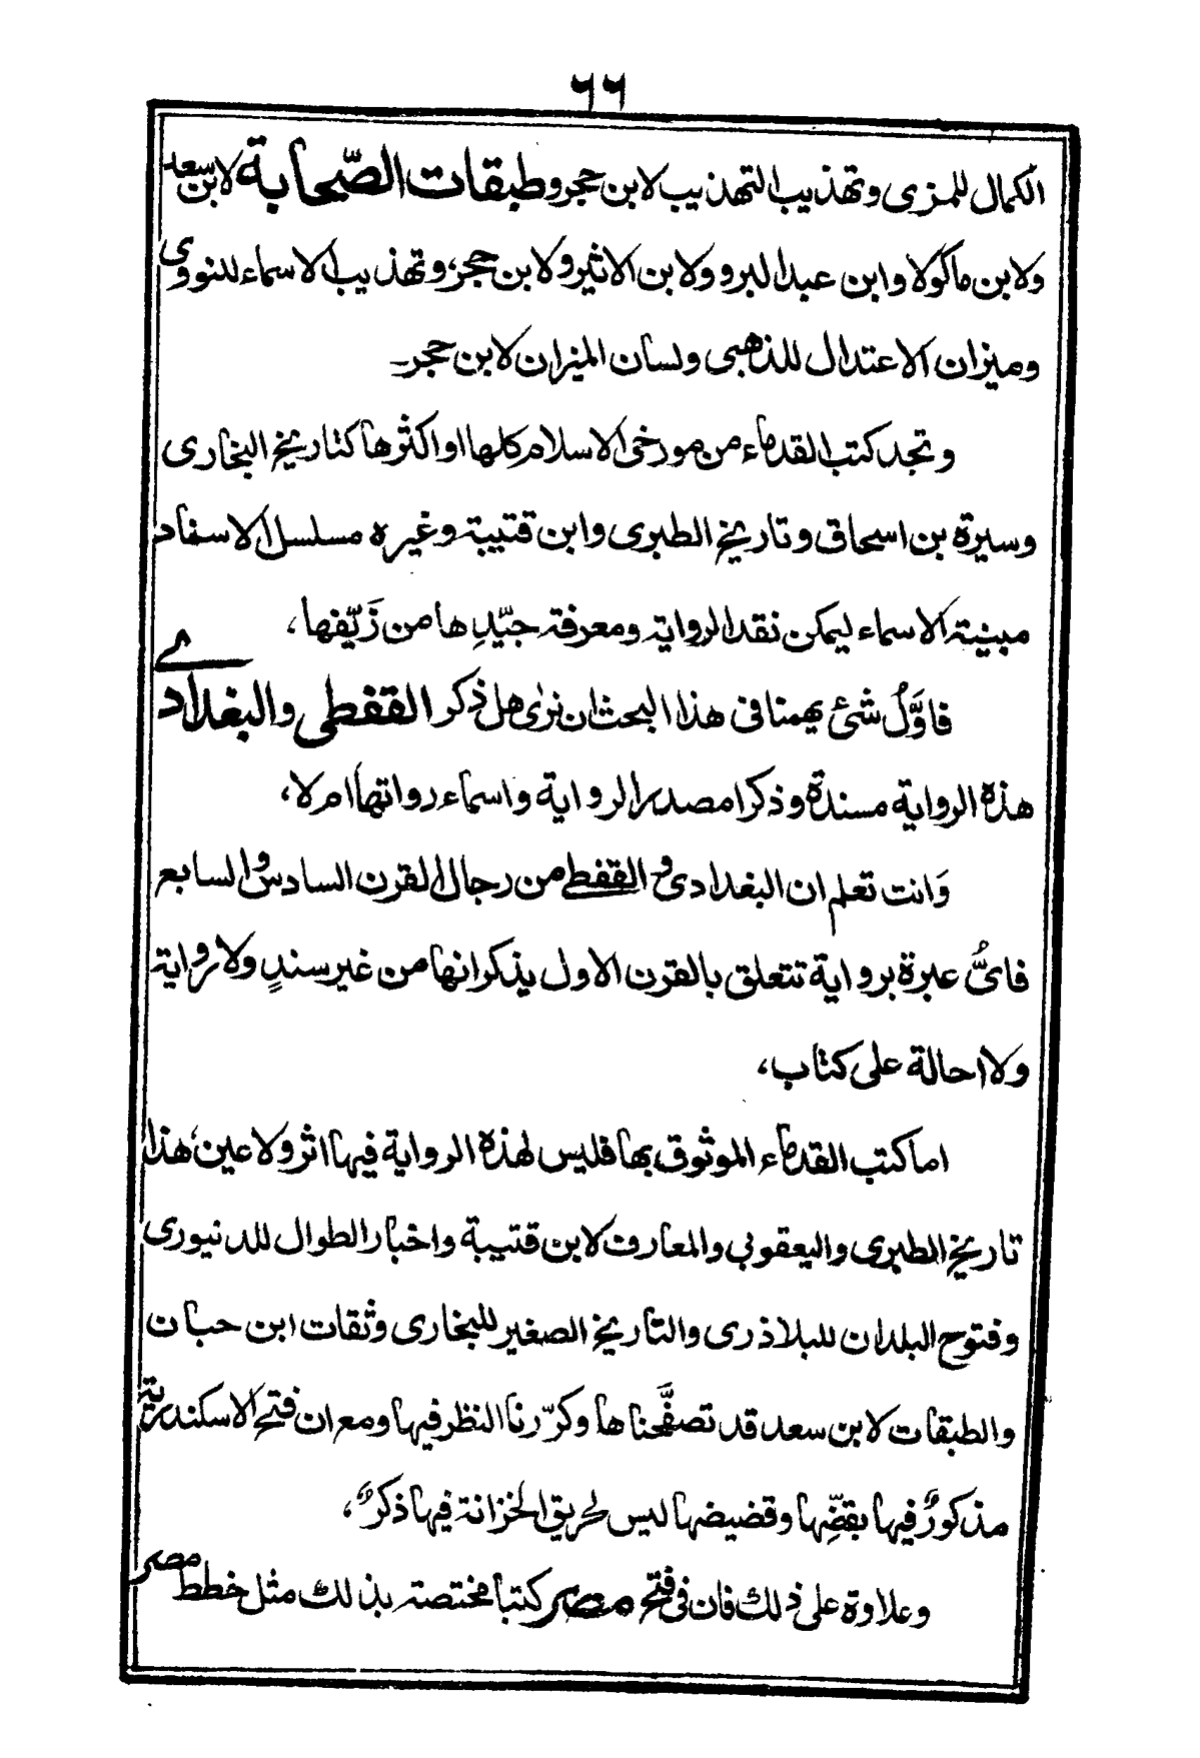 ٦٦
الكمال للمزى وتهذيب التهذيب لابن حجر وطبقات الصّحابة لابن سعد
ولابن ماكولا وابن عبد البر وولابن الاثير ولابن حجر، وتهذيب الاسماء للنووى
وميزان الاعتدال للذهبى ولسان الميزان لابن حجر۔
وتجد كتب القدماء من مورخى الاسلام كلها او اكثرها كتاريخ البخارى
وسيرة بن اسحاق وتاريخ الطبرى وابن قتيبة وغيره مسلسل الاسناد
مبنية الاسماء ليمكن نقد الرواية ومعرفة جيّدِها من زَيّفها،
فاوَّلُ شئ يهمنا فى هذا البحث ان نرٰى هل ذكر القفطى والبغدادے
هذه الرواية مسندة وذكرا مصدر الرواية واسماء رواتها ام لا،
وَانت تعلم ان البغدادى والقفطے من رجال القرن السادس والسابع
فاىُّ عبرة برواية تتعلق بالقرن الاول يذكرانها من غير سندٍ ولا رواية
ولا احالة على كتاب،
اما كتب القدماء الموثوق بها فليس لهذه الرواية فيها اثر ولا عين، هذا
تاريخ الطبرى واليعقوبى والمعارف لابن قتيبة واخبار الطوال للدنيورى
وفتوح البلدان للبلاذرى والتاريخ الصغير للبخارى وثقات ابن حبان
والطبقات لابن سعد قد تصفَّحناها وكرّرنا النظر فيها ومع ان فتح الاسكندرية
مذكورٌ فيها بقضِّها وقضيضها ليس لحريق الخزانة فيها ذكرٌ،
وعلاوة على ذلك فان فى فتح مصر كتبا مختصة بذلك مثل خطط مصر